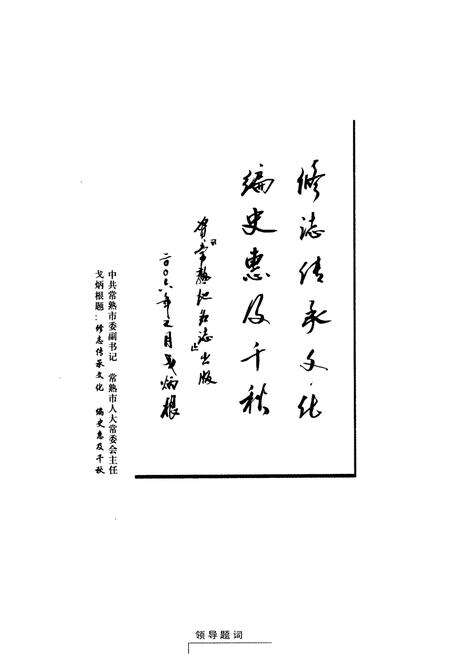 修誌传承文化
编史惠及千秋
贺《常熟地名志》出版
二〇〇六年五月戈炳根
中共常熟市委副书记 常熟市人大常委会主任
戈炳根题：修志传承文化 编史惠及千秋
领导题词